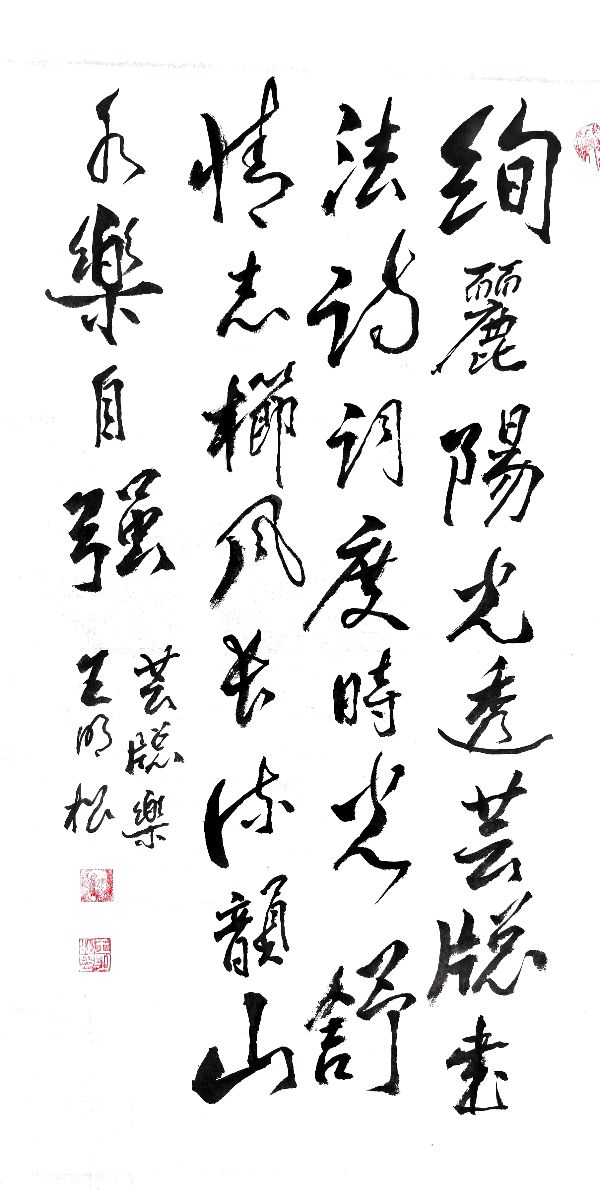 絢麗陽光透芸牕書
法詩詞度時光舒
情志櫛風長流韻山
水樂自强
芸牕樂
王明松